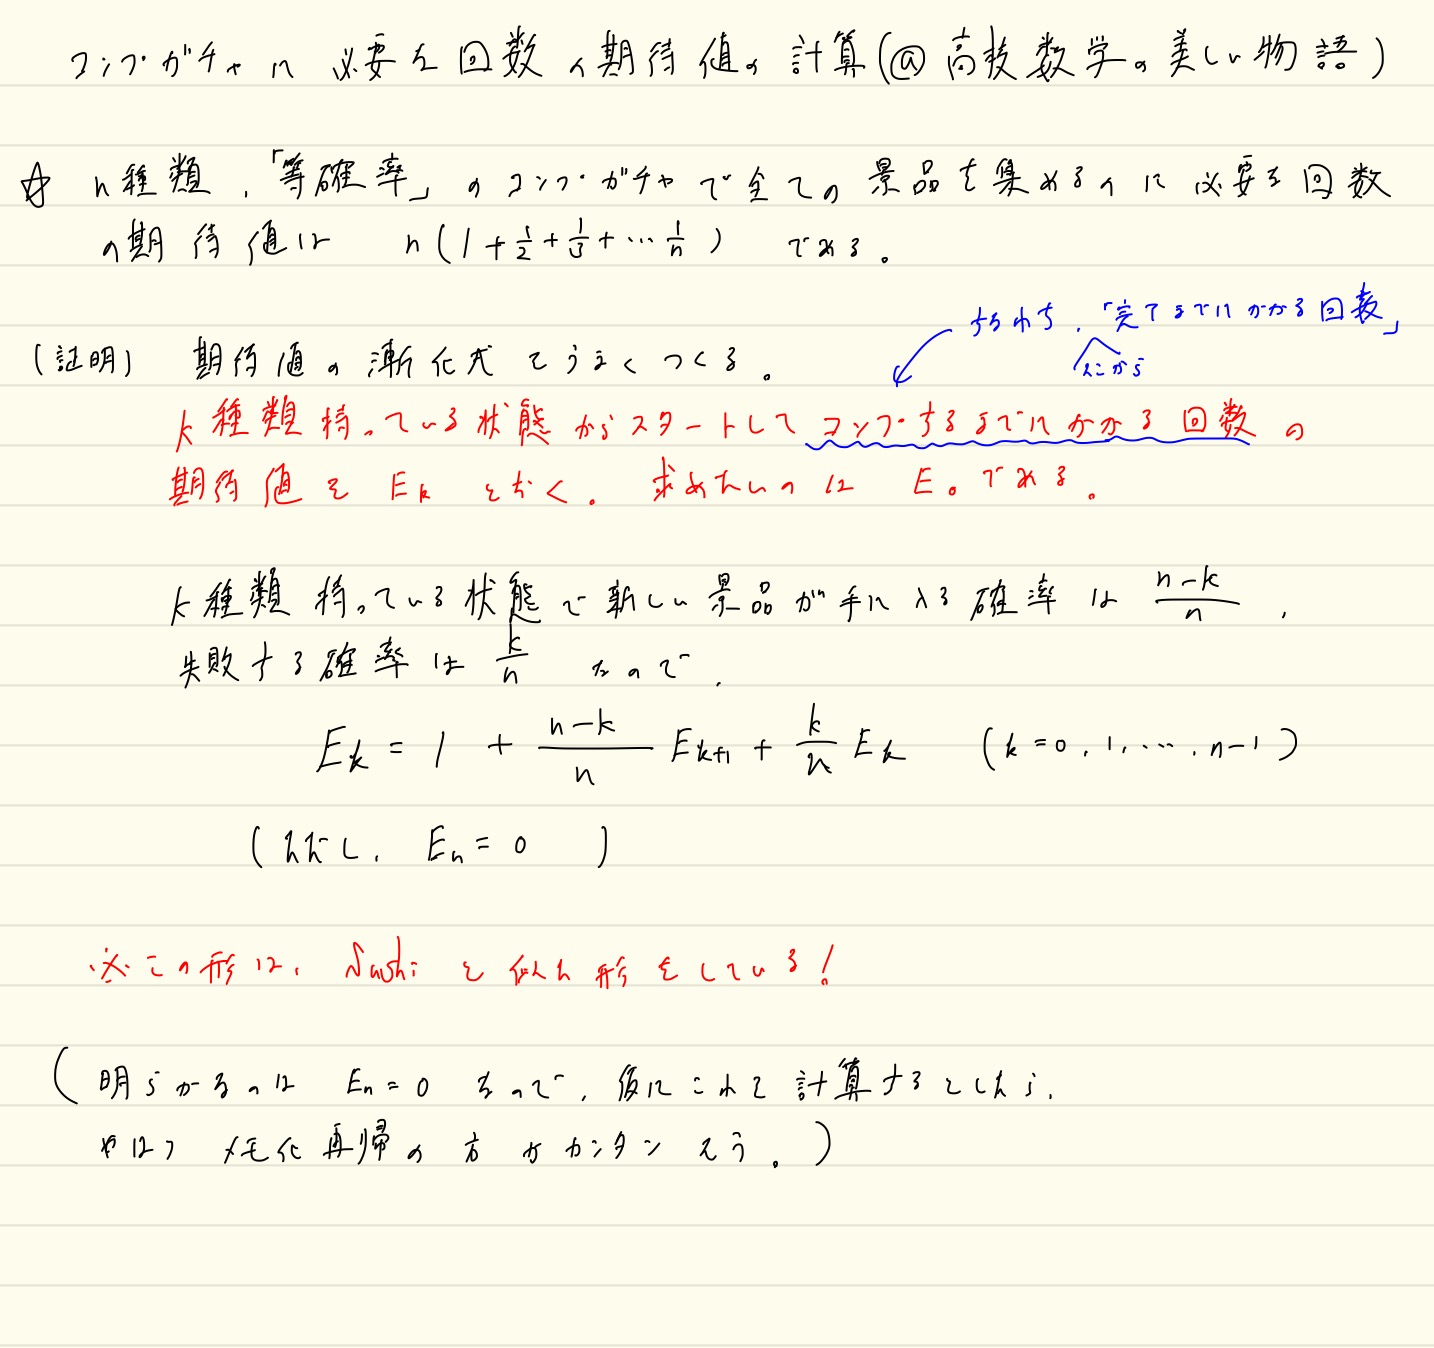 コンプガチャに必要な回数の期待値の計算(@高校数学の美しい物語)
☆ n種類,「等確率」のコンプガチャで全ての景品を集めるのに必要な回数
の期待値は n(1+1/2+1/3+…1/n) である。
すなわち,「完了までにかかる回数」
そこから
(証明) 期待値の漸化式をうまくつくる。
k種類持っている状態からスタートしてコンプするまでにかかる回数の
期待値を Ek とおく。求めたいのは E0である。
k種類持っている状態で新しい景品が手に入る確率は (n-k)/n ,
失敗する確率は k/n なので,
Ek = 1 + (n-k)/n Ek+1 + k/n Ek (k=0,1,…,n-1)
(ただし, En=0 )
※この形は, Sushi と似た形をしている!
(明らかなのは En=0 なので, 仮にこれを計算するとしたら,
やはり メモ化再帰の方がカンタンそう。)